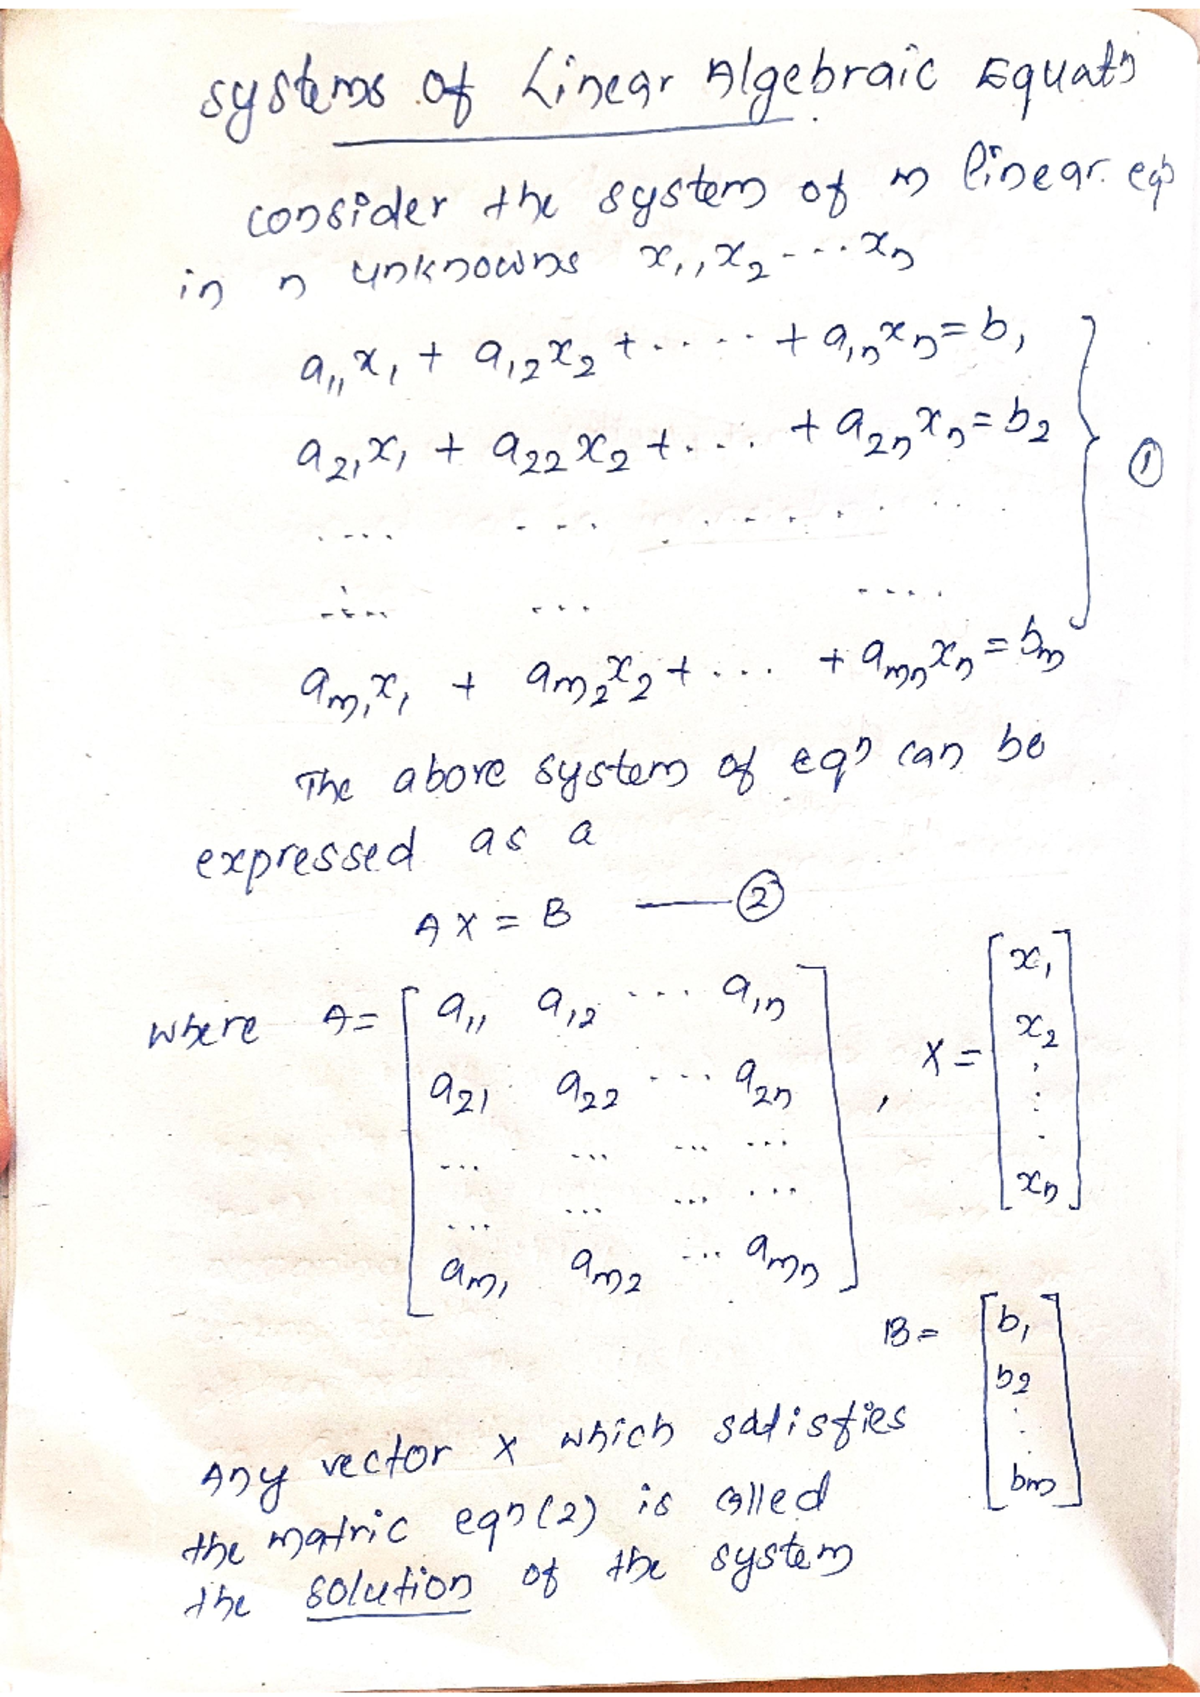 systems of Linear Algebraic Equatn
consider the system of m linear eqn
in n unknowns x₁, x₂ --- xₙ
a₁₁x₁ + a₁₂x₂ + ..... + a₁ₙxₙ = b₁
a₂₁x₁ + a₂₂x₂ + .... + a₂ₙxₙ = b₂ ①
.... ... .........
..... ... ....
aₘ₁x₁ + aₘ₂x₂ + ... + aₘₙxₙ = bₘ
The above system of eqn can be
expressed as a
AX = B —— ②
where A = [ a₁₁ a₁₂ ... a₁ₙ ], X = [ x₁
a₂₁ a₂₂ ... a₂ₙ x₂
... ... ... ... :
... ... ... ... .
aₘ₁ aₘ₂ ... aₘₙ xₙ ]
B = [ b₁
b₂
:
bm ]
Any vector X which satisfies
the matric eqn (2) is called
the solution of the system